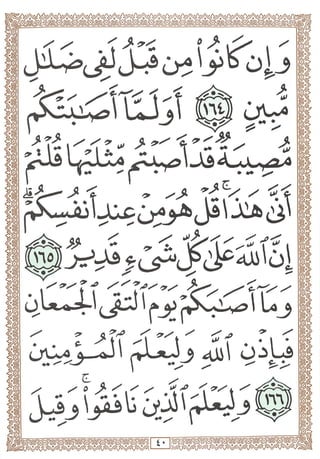 وَإِن كَانُوا۟ مِن قَبْلُ لَفِى ضَلَـٰلٍ
مُّبِينٍ ١٦٤ أَوَلَمَّآ أَصَـٰبَتْكُم
مُّصِيبَةٌ قَدْ أَصَبْتُم مِّثْلَيْهَا قُلْتُمْ
أَنَّىٰ هَـٰذَا ۖ قُلْ هُوَ مِنْ عِندِ أَنفُسِكُمْ ۗ
إِنَّ ٱللَّهَ عَلَىٰ كُلِّ شَىْءٍ قَدِيرٌ ١٦٥
وَمَآ أَصَـٰبَكُمْ يَوْمَ ٱلْتَقَى ٱلْجَمْعَانِ
فَبِإِذْنِ ٱللَّهِ وَلِيَعْلَمَ ٱلْمُؤْمِنِينَ
١٦٦ وَلِيَعْلَمَ ٱلَّذِينَ نَافَقُوا۟ ۚ وَقِيلَ
٤٠